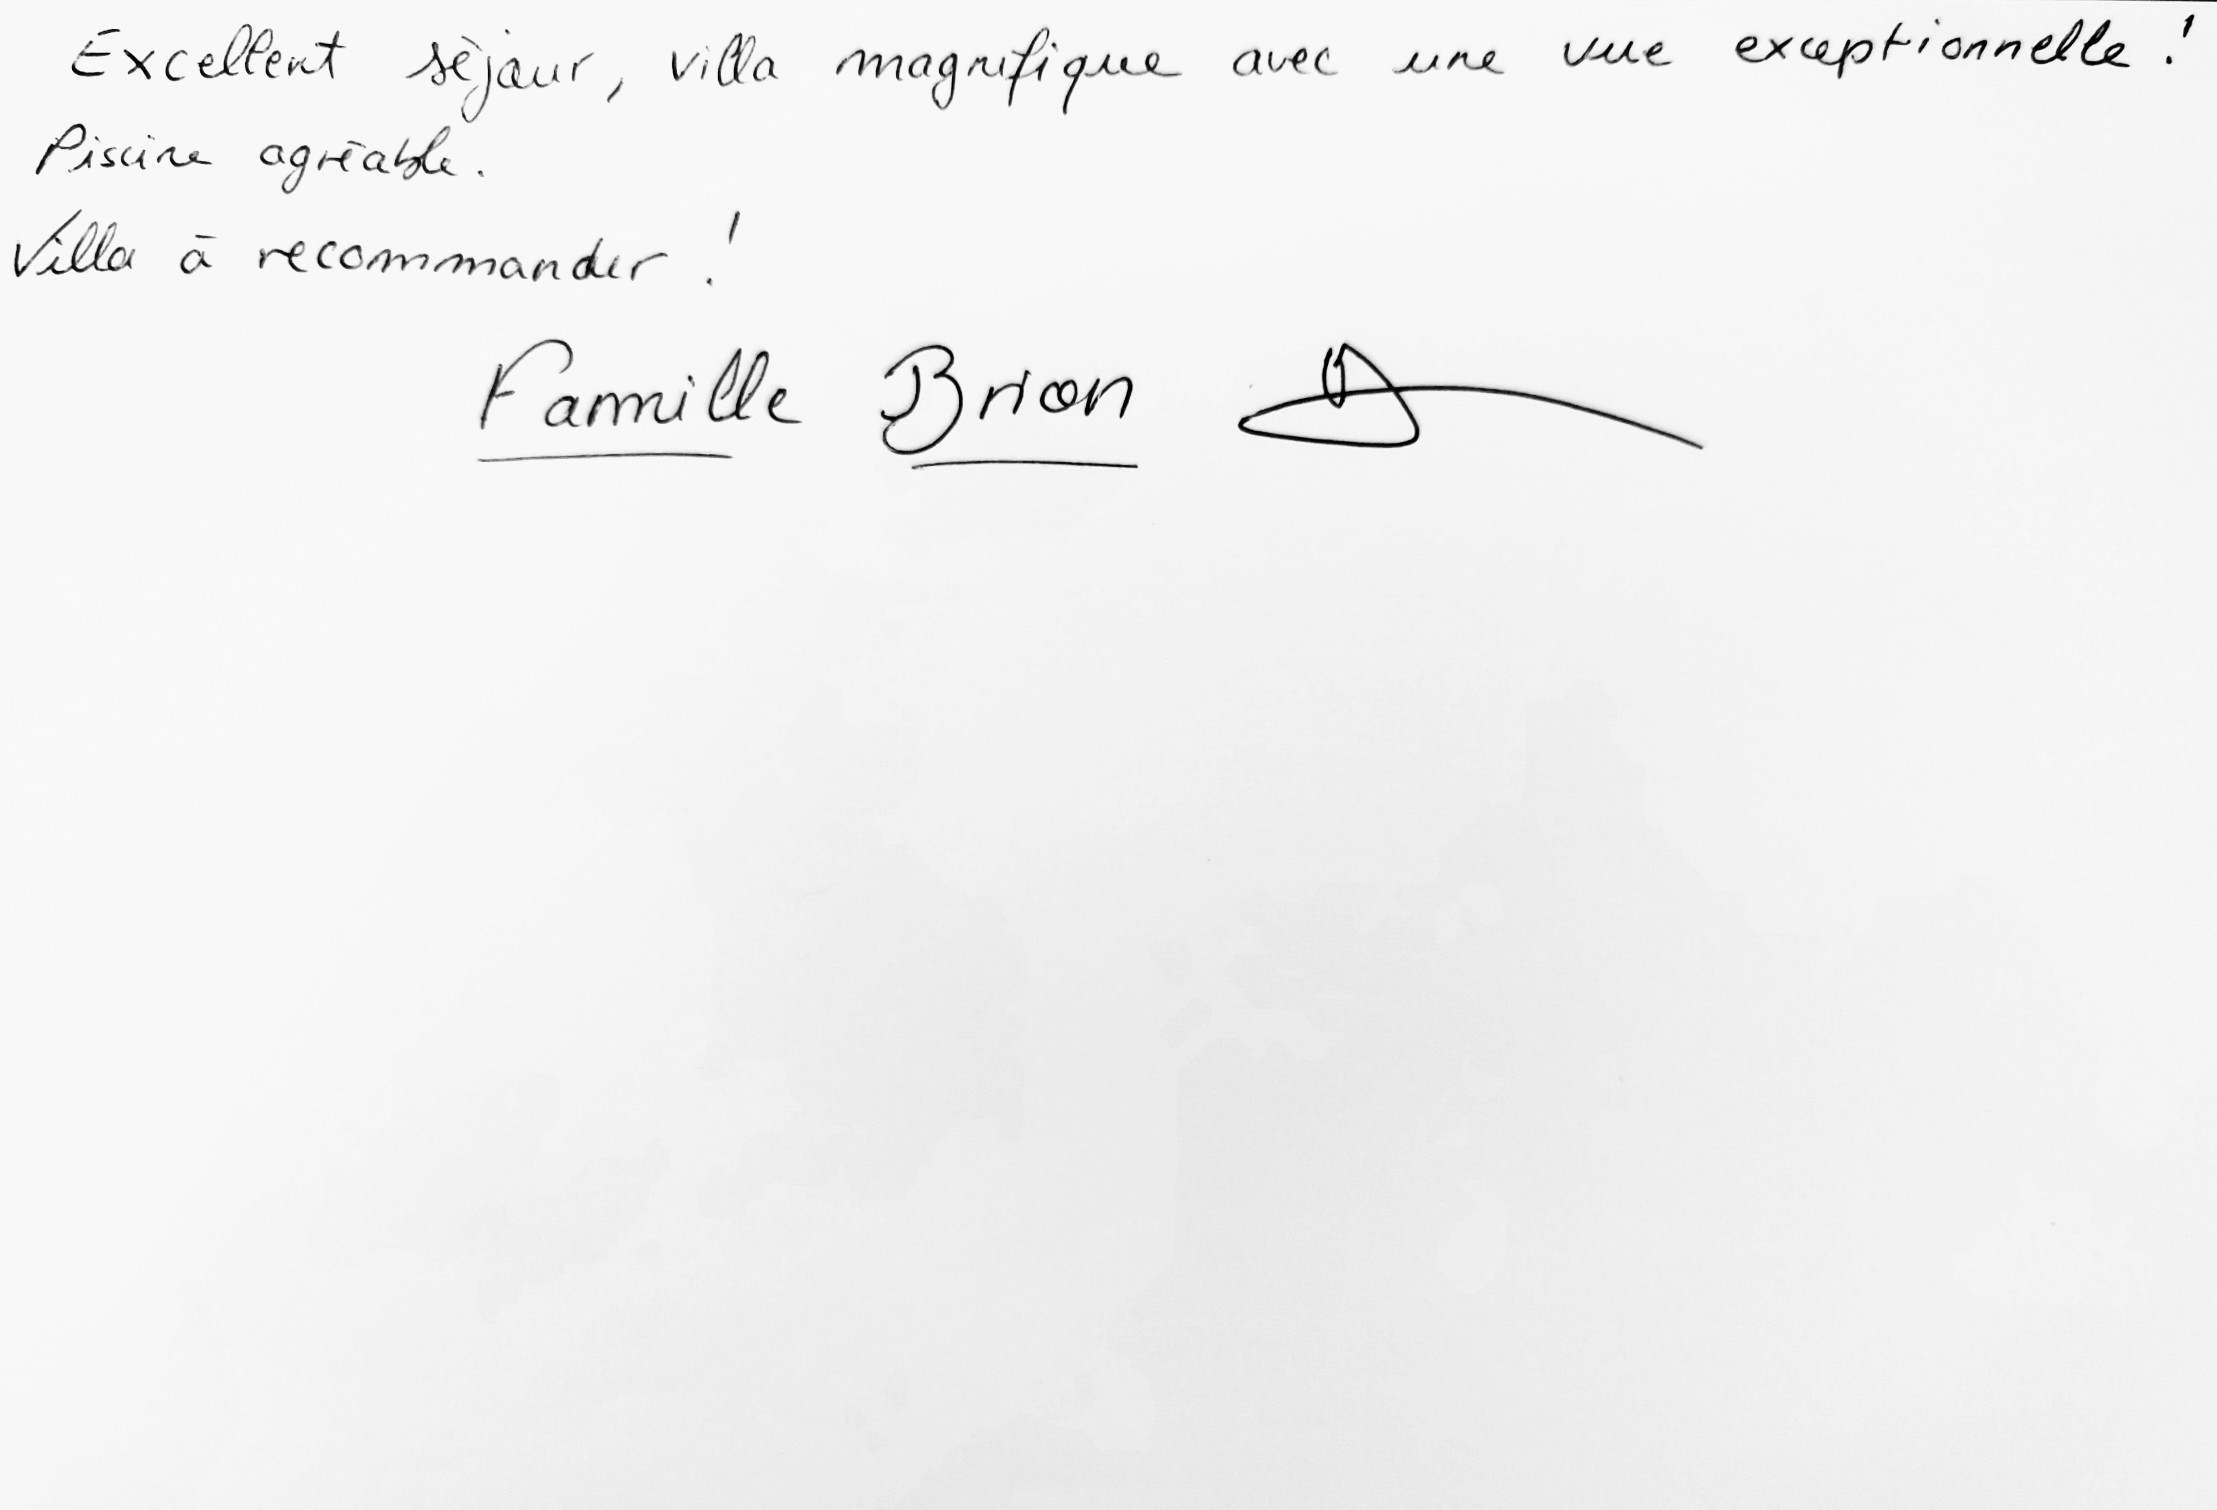 Excellent séjour, villa magnifique avec une vue exceptionnelle !
Piscine agréable.
Villa à recommander !
Famille Brion